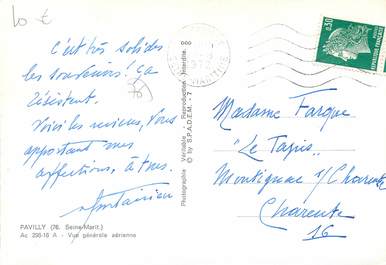 10 €
C'est très solides
les souvenirs ! ça
résistent.
Voici les miens, vous
apportant mes
affections, à tous.
PAVILLY (76. Seine-Marit.)
Ac 256-16 A - Vue générale aérienne
Photographie Véritable - Reproduction Interdite.
© by S.P.A.D.E.M. - 7
0,30
RÉPUBLIQUE FRANÇAISE
Madame Farque
"Le Tapis"
Montignac s/ Charente
Charente
16